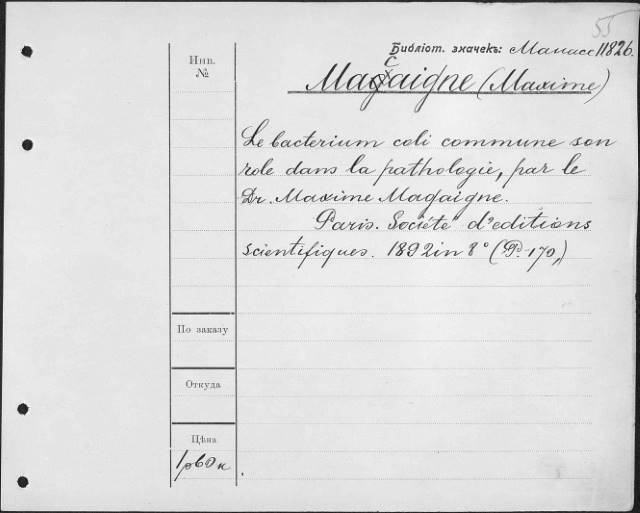 55
Библіот. значекъ: Манасс 11826.
Инв.
№
Macaigne (Maxime)
Le bacterium coli commune son
role dans la pathologie, par le
Dr. Maxime Magaigne.
Paris. Société d'editions
scientifiques. 1892 in 8° (P. 170,)
По заказу
Откуда
Цѣна
1 р 60 к.